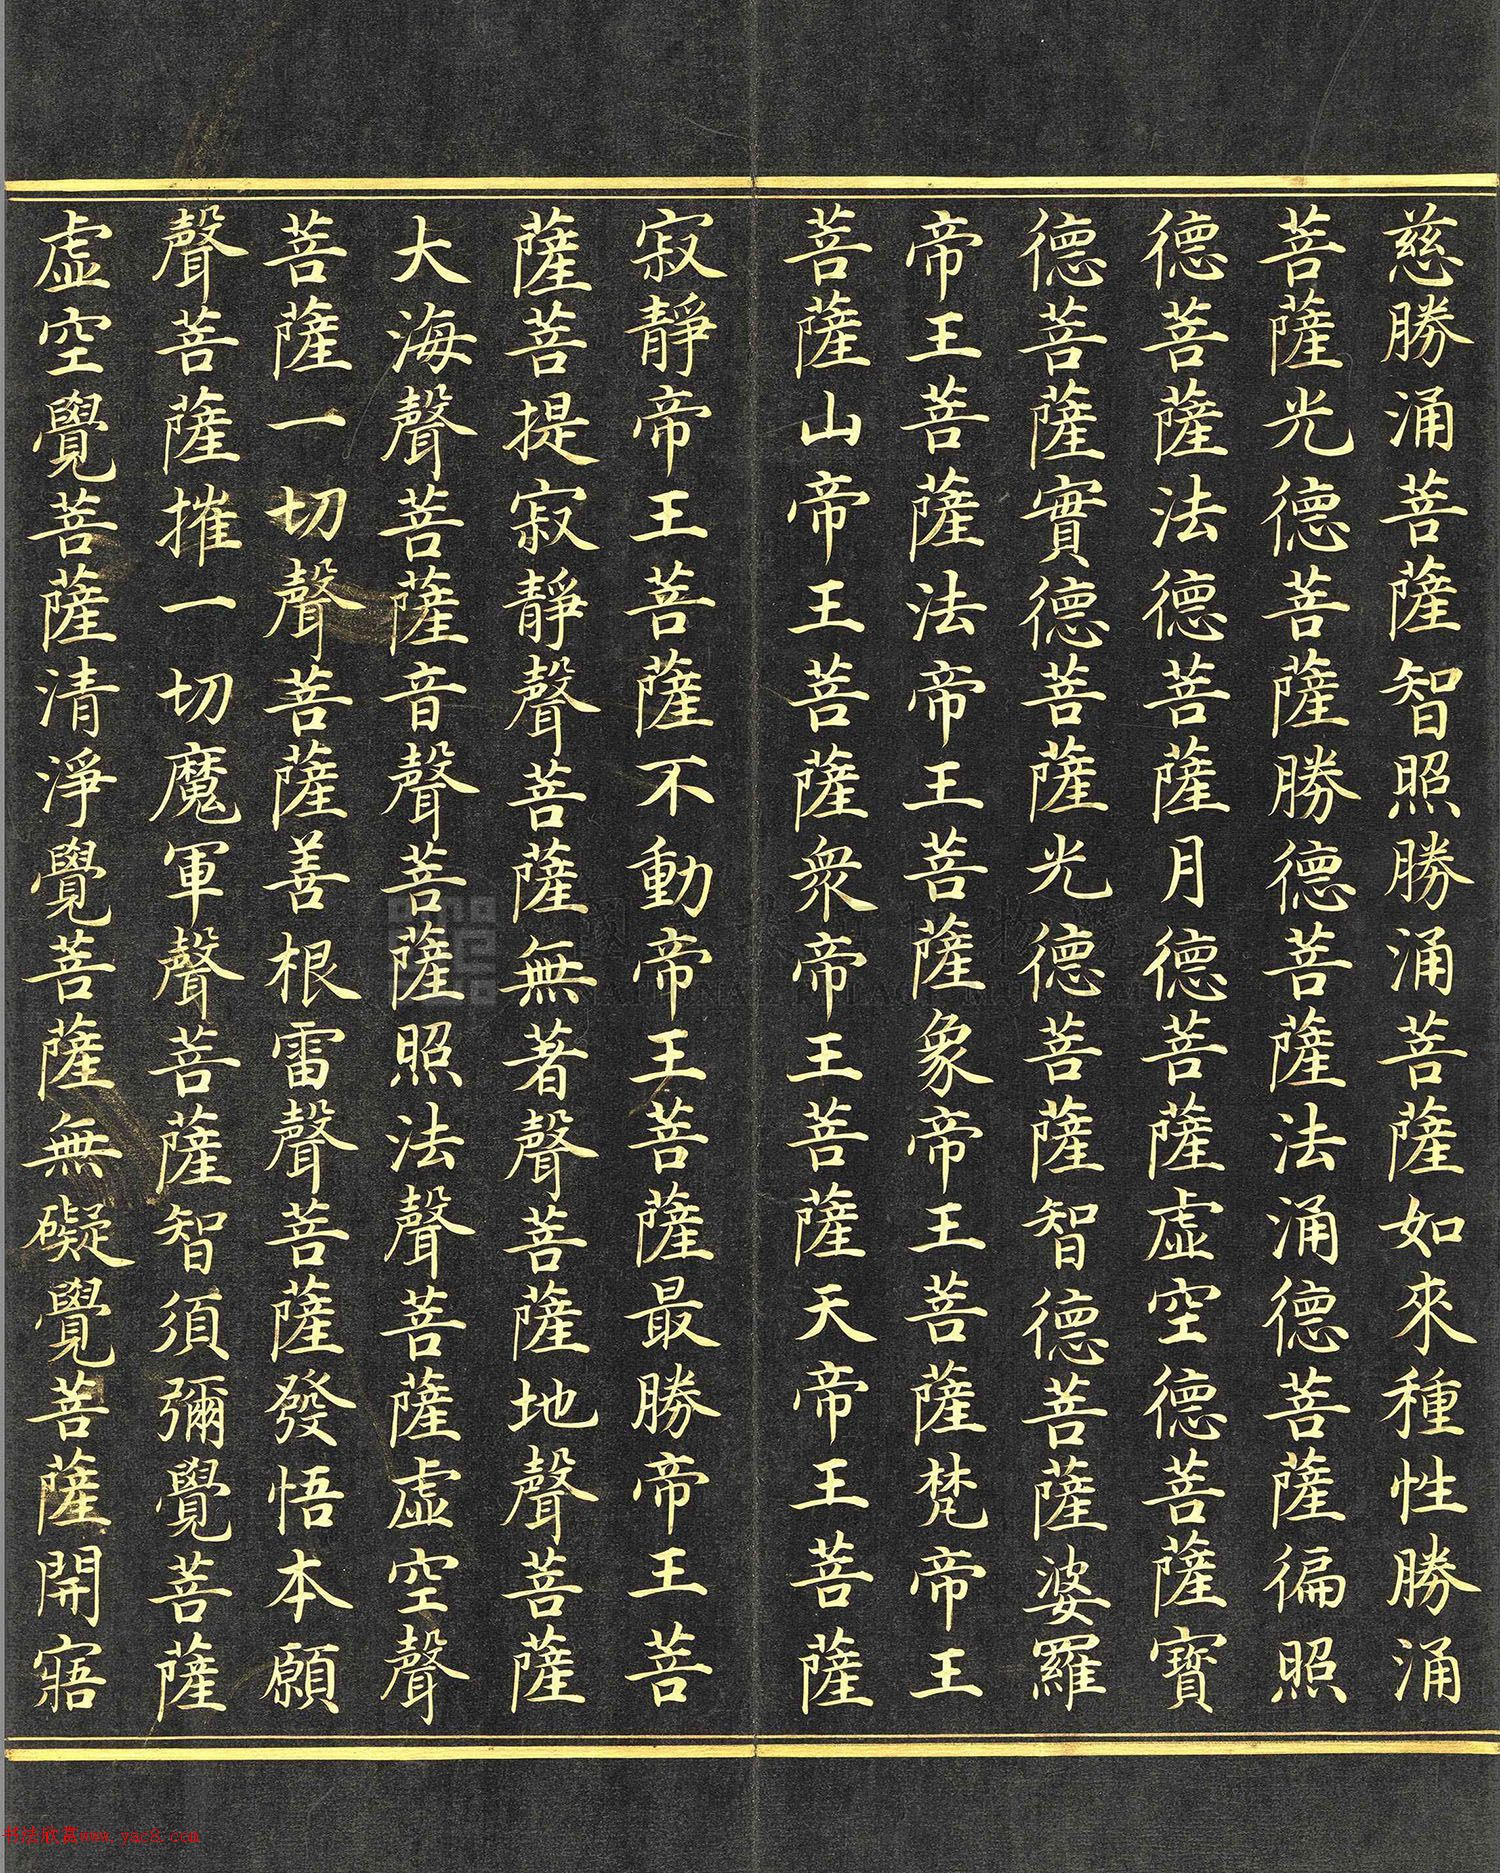 慈勝涌菩薩智照勝涌菩薩如來種性勝涌
菩薩光德菩薩勝德菩薩法涌德菩薩徧照
德菩薩法德菩薩月德菩薩虛空德菩薩寶
德菩薩實德菩薩光德菩薩智德菩薩娑羅
帝王菩薩法帝王菩薩象帝王菩薩梵帝王
菩薩山帝王菩薩衆帝王菩薩天帝王菩薩
寂靜帝王菩薩不動帝王菩薩最勝帝王菩
薩菩提寂靜聲菩薩無著聲菩薩地聲菩薩
大海聲菩薩音聲菩薩照法聲菩薩虛空聲
菩薩一切聲菩薩善根雷聲菩薩發悟本願
聲菩薩摧一切魔軍聲菩薩智須彌覺菩薩
虛空覺菩薩清淨覺菩薩無礙覺菩薩開寤
NATIONAL PALACE MUSEUM
书法欣赏www.yac8.com